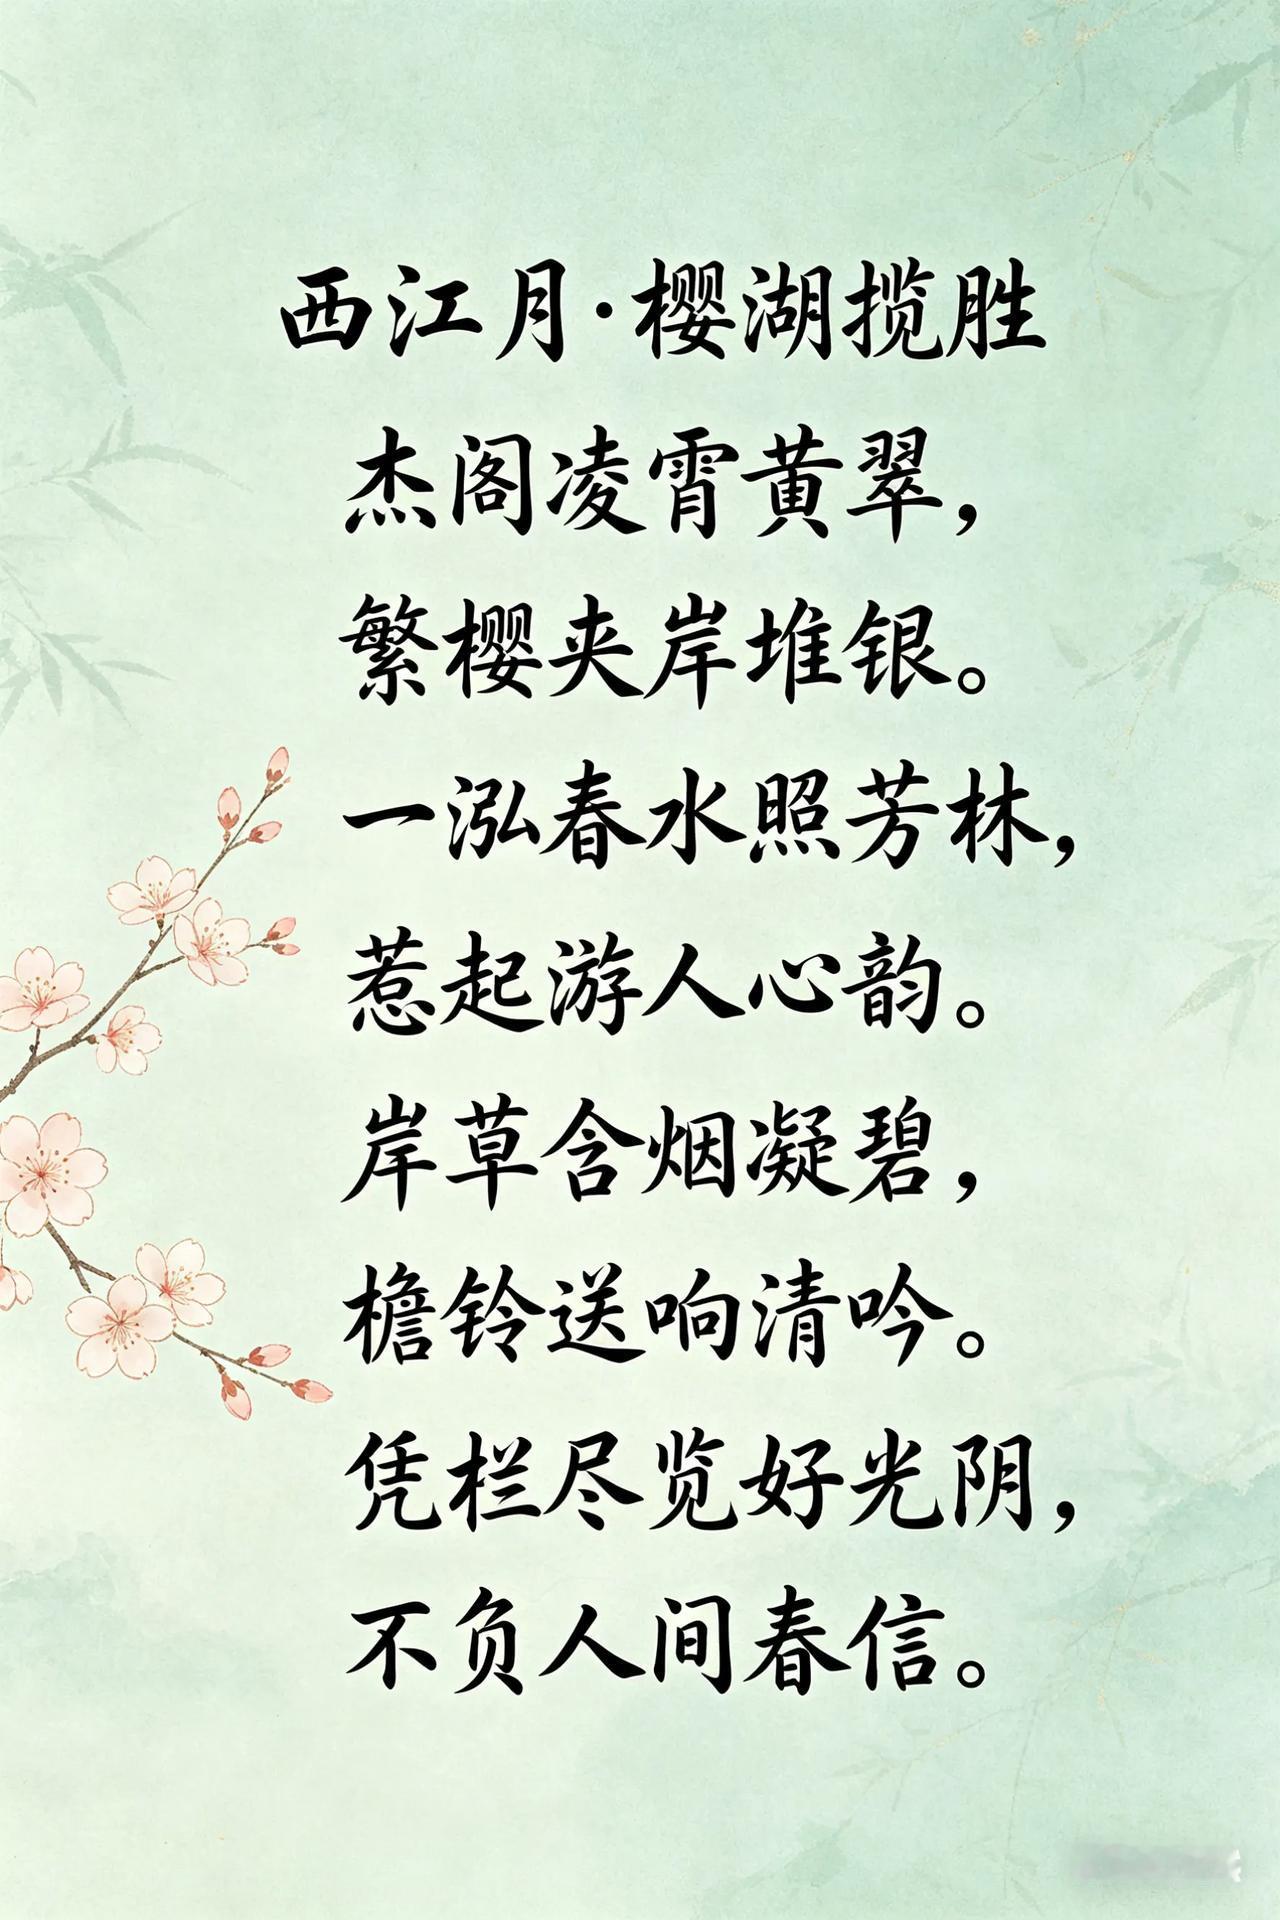 西江月·樱湖揽胜
杰阁凌霄黄翠，
繁樱夹岸堆银。
一泓春水照芳林，
惹起游人心韵。
岸草含烟凝碧，
檐铃送响清吟。
凭栏尽览好光阴，
不负人间春信。